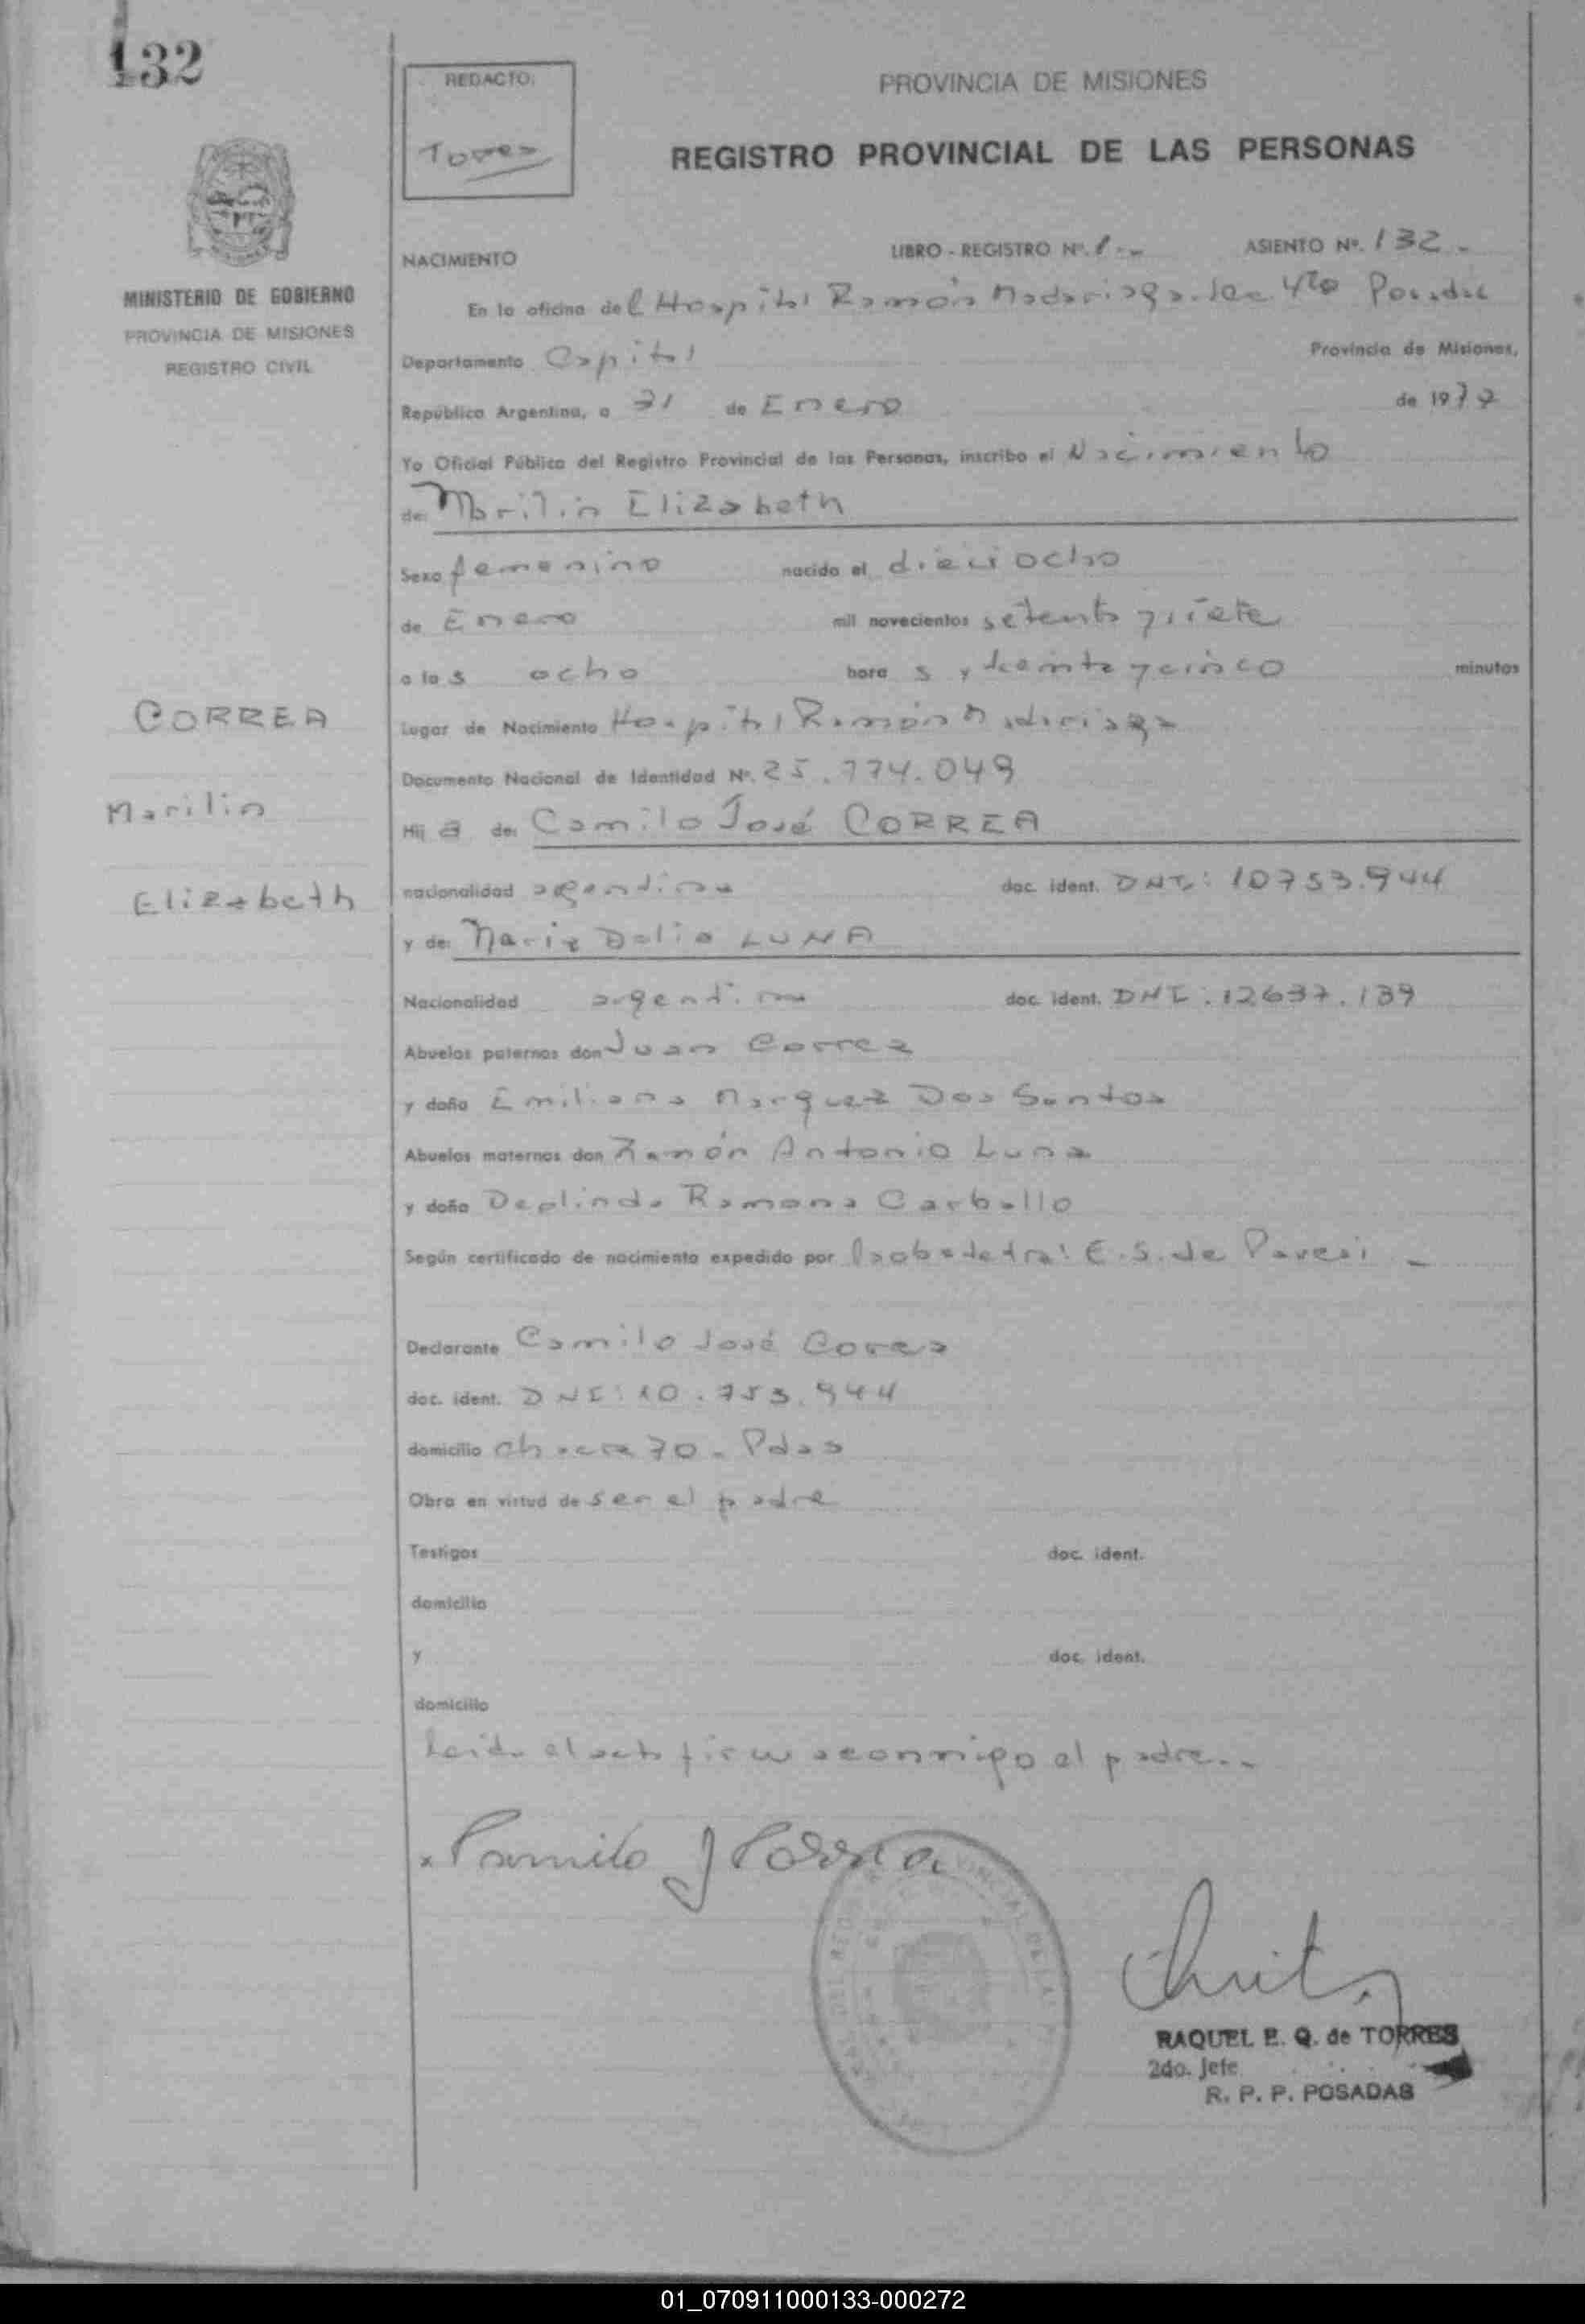 132
REDACTO:
Torres
PROVINCIA DE MISIONES
REGISTRO PROVINCIAL DE LAS PERSONAS
MINISTERIO DE GOBIERNO
PROVINCIA DE MISIONES
REGISTRO CIVIL
NACIMIENTO LIBRO - REGISTRO Nº. 1.-- ASIENTO Nº. 132.-
En la oficina del Hospital Ramón Madariaga. Posadas
Departamento Capital Provincia de Misiones,
República Argentina, a 31 de Enero de 1977
Yo Oficial Público del Registro Provincial de las Personas, inscribo el Nacimiento
de: Marilin Elizabeth
Sexo femenino nacido el dieciocho
de Enero mil novecientos setenta y siete
a las ocho horas y treinta y cinco minutos
Lugar de Nacimiento Hospital Ramón Madariaga
Documento Nacional de Identidad Nº. 25.774.049
Hija de: Camilo José CORREA
CORREA
Marilin
Elizabeth
nacionalidad argentina doc. ident. DNI: 10753.944
y de: Maria Delia LUNA
Nacionalidad argentina doc. ident. DNI: 12637.139
Abuelos paternos don Juan Correa
y doña Emiliana Marquez Dos Santos
Abuelos maternos don Ramón Antonio Luna
y doña Deolinda Ramona Carballo
Según certificado de nacimiento expedido por E.S. de Pavesi -
Declarante Camilo José Correa
doc. ident. DNI: 10.753.944
domicilio chacra 70 - Pdas
Obra en virtud de ser el padre
Testigos doc. ident.
domicilio
y doc. ident.
domicilio
Leida el acta firma conmigo el padre.--
x Camilo J Correa
RAQUEL E. Q. de TORRES
2do. Jefe
R. P. P. POSADAS
01_070911000133-000272